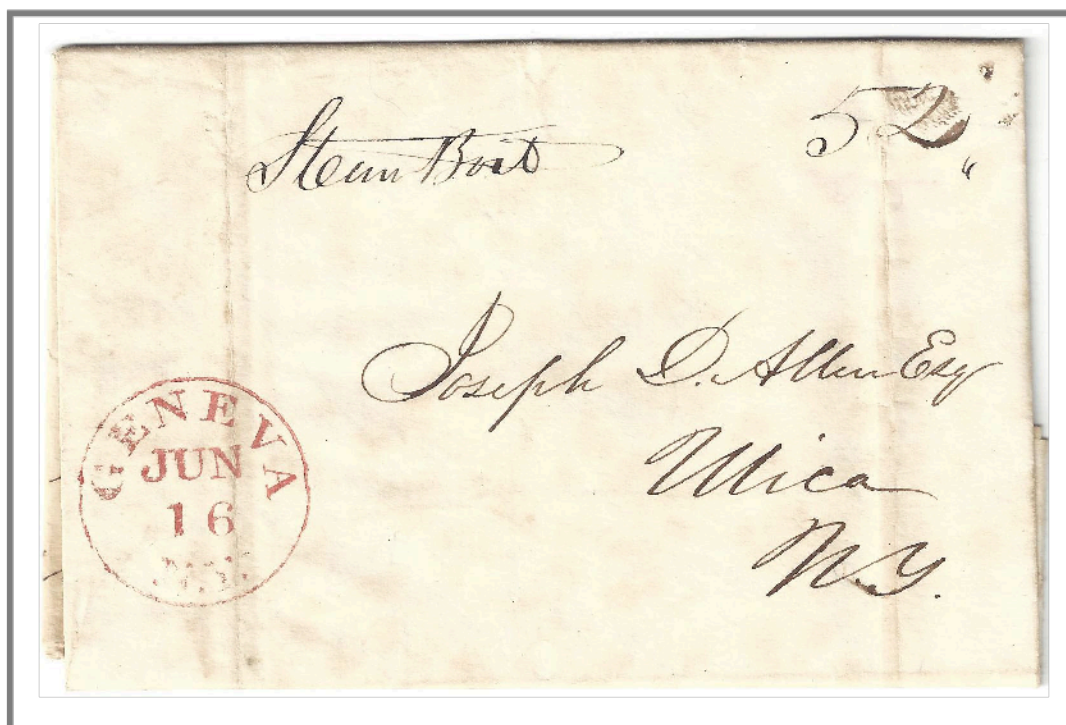 Steam Boat
52
Joseph D. Allen Esqr
Utica
N.Y.
GENEVA
JUN
16
N.Y.